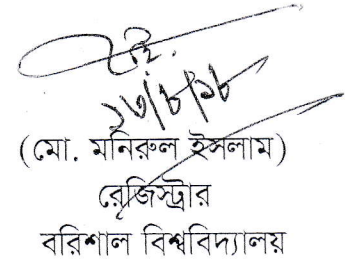 ২৩/৮/১৮
(মো. মনিরুল ইসলাম)
রেজিস্ট্রার
বরিশাল বিশ্ববিদ্যালয়